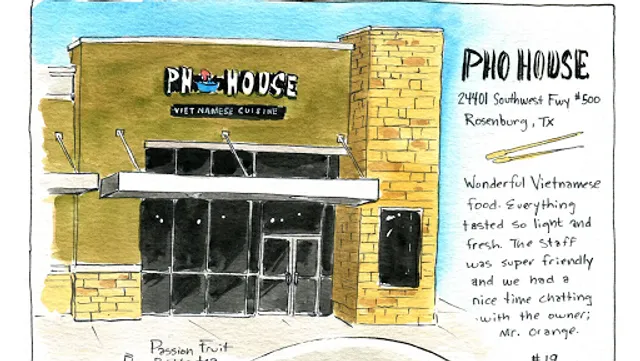 PHO HOUSE
VIETNAMESE CUISINE
PHO HOUSE
24401 Southwest Fwy #500
Rosenburg, TX
Wonderful Vietnamese
food. Everything
tasted so light and
fresh. The staff
was super friendly
and we had a
nice time chatting
with the owner;
Mr. Orange.
Passion Fruit
$19